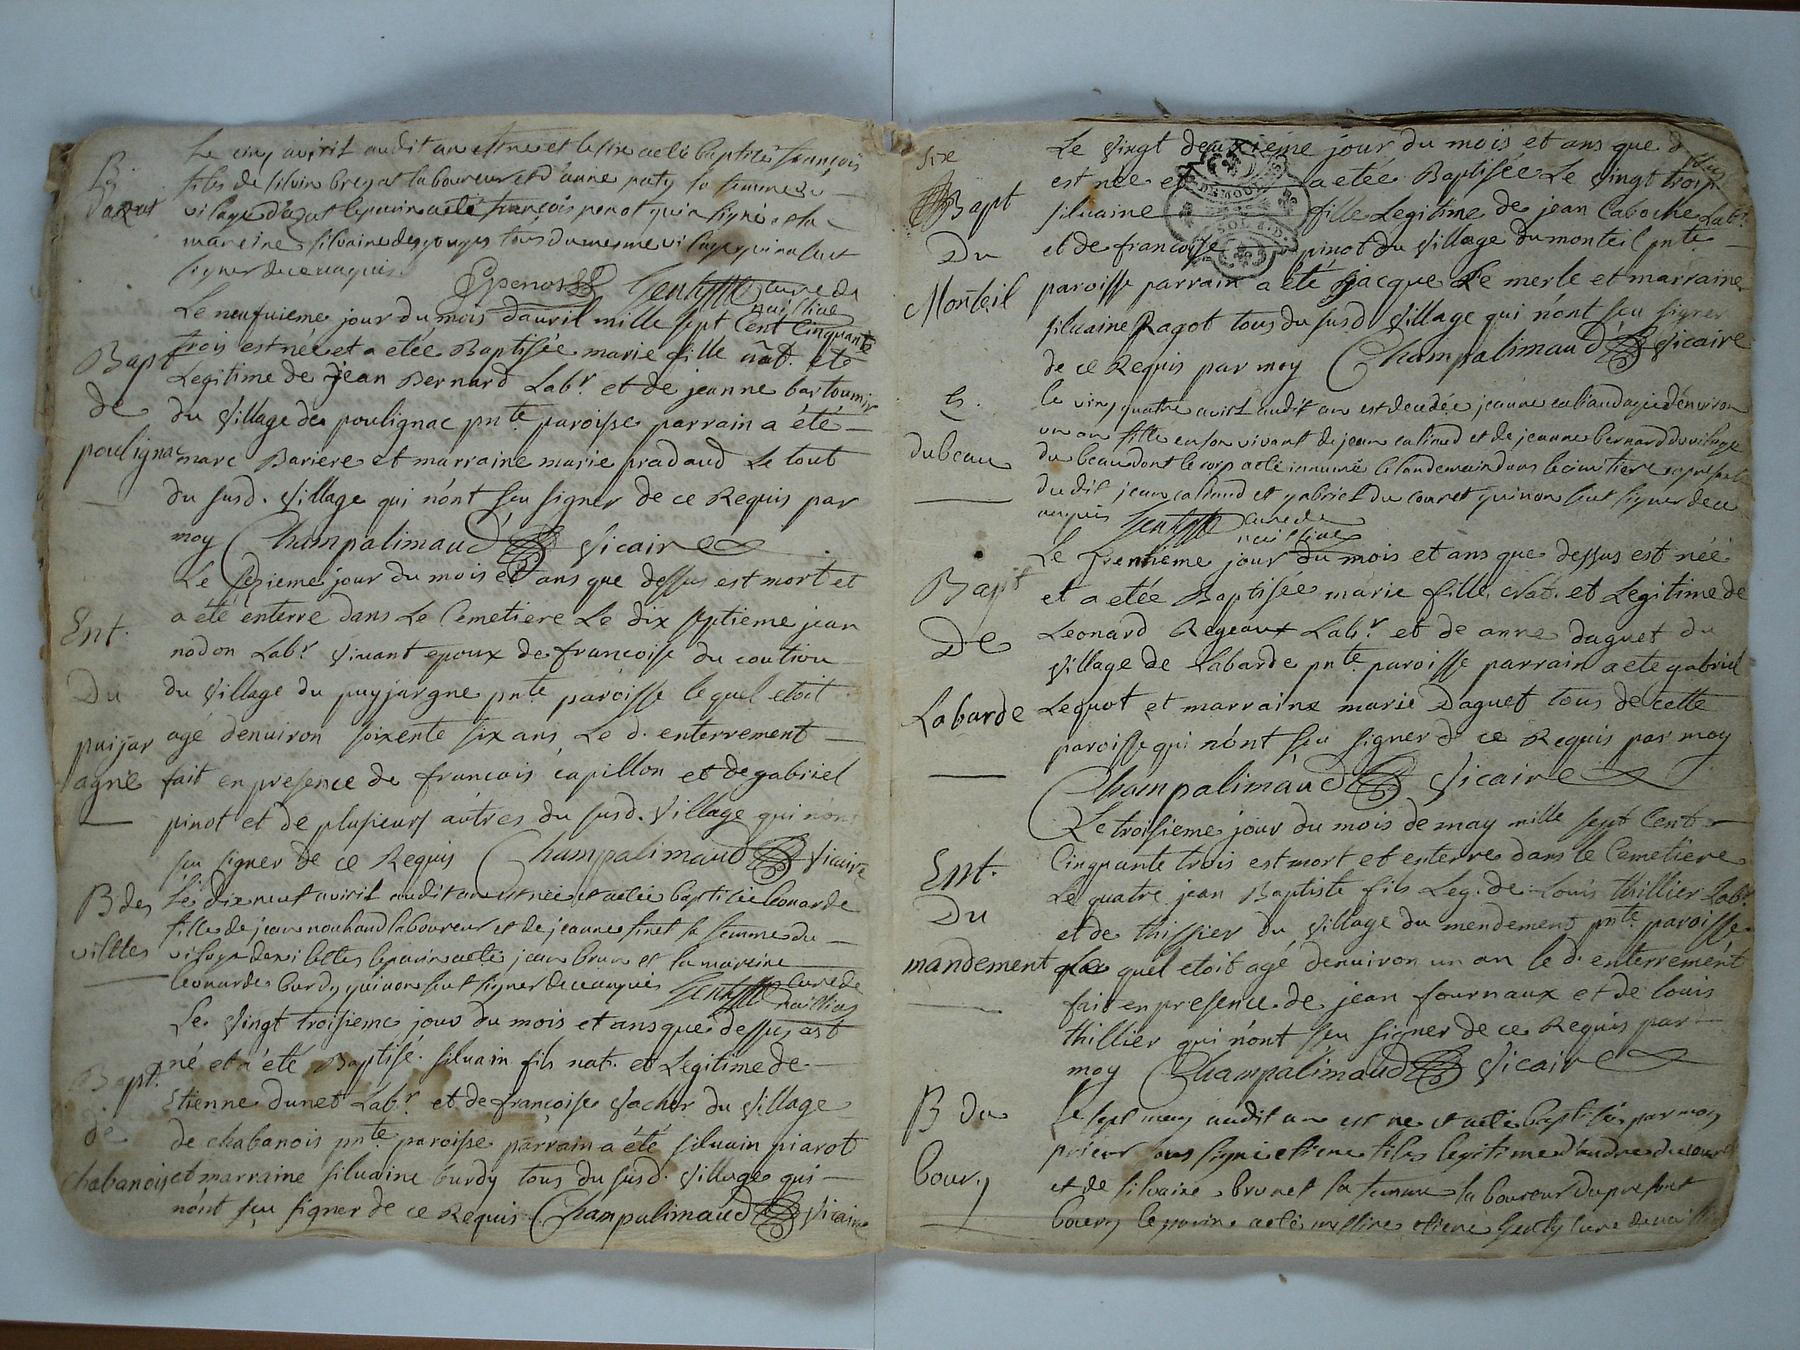 Le cinq aviril audit an est né et le sixe a eté baptisé françois
B. fils de silvin bregat laboureur et d'anne paty sa femme du
dazat vilage d'azat le parin a eté françois penot qui a signé et la
mareine silvaine desgouges tous du mesme vilage qui na seut
signer de ce enquis
GPenot Gentyffe curé de
naillat
Le neufvieme jour du mois d'avril mille sept Cent Cinquante
trois est née et a etée Baptisée marie fille nat. et
Bapt Legitime de Jean Bernard Labr. et de jeanne bartoumir
de du Village de poulignac pnte. paroisse parrain a été
poulignac marc Bariere et marraine marie pradaud Le tout
du susd. Village qui n'ont sçu signer de ce Requis par
moy Champalimaud Vicaire
Le sezieme jour du mois et ans que dessus est mort et
a été enterre dans Le Cemetiere Le dix septieme jean
Ent. nadon Labr. Vivant epoux de francoise du coutiou
Du du Village du puyjargne pnte. paroisse lequel etoit
puijar agé denuiron soixente six ans, Le d. enterrement
agne fait en presence de francois capillon et de gabriel
pinot et de plusieurs autres du susd. Village qui n'ont
sçu signer de ce Requis Champalimaud Vicaire
B des Le dixneuf aviril audit an est née et a eté baptisée leonarde
villtes fille de jean nouhaud laboureur et de jeanne finet sa femme du
vilage des vilettes le parin a eté jean brun et la mareine
leonarde burdy qui non seut signer de ce enquis Gentyffe curé de
naillat
Le Vingt troisieme jour du mois et ans que dessus est
né et a été Baptisé silvain fils nat. et Legitime de
Bapt. Etienne dunet Labr. et de francoise Vacher du Village
de de chabanois pnte. paroisse parrain a été silvain piarot
Chabanois et marraine silvaine burdy tous du susd. Village qui
n'ont sçu signer de ce Requis Champalimaud Vicaire
Six Le Vingt deuxieme jour du mois et ans que d
est née et a etée Baptisée Le Vingt trois
Bapt silvaine fille Legitime de jean Caboche Labr.
Du et de francoise pinot du Village du monteil pnte
Monteil paroisse parrain a été jacque Le merle et marraine
silvaine Ragot tous du susd. Village qui n'ont sçu signer
de ce Requis par moy Champalimaud Vicaire
E. le vinq quatre avirl audit an est decedée jeanne caliaud agée d'environ
un an fille en son vivant de jean caliaud et de jeanne bernard du vilage
du beau du beau dont le corp a eté innumé le landemain dans le cimitiere
dudit jean caliaud et gabriel du couret qui non seut signer de ce
enquis Gentyffe curé de
naillat
Le trentieme jour du mois et ans que dessus est née
Bapt et a etée Baptisée marie fille Nat. et Legitime de
De Leonard Regeaux Labr. et de anne daguet du
Village de Labarde pnte. paroisse parrain a ete gabriel
Labarde Lequot et marraine marie Daguet tous de cette
paroisse qui n'ont sçu signer d ce Requis par moy
Champalimaud Vicaire
Le troisieme jour du mois de may mille sept Cent
Cinquante trois est mort et enterre dans le Cemetiere
Ent. Le quatre jean Baptiste fils Leg. de Louis thillier Labr.
Du et de thissier du Village du mendement pnte. paroisse
mandement Le quel etoit agé denuiron un an le d. enterrement
fait en presence de jean fournaux et de louis
thillier qui n'ont sçu signer de ce Requis par
moy Champalimaud Vicaire
B du Le sept may audit an est né et a eté baptisé par moy
prieur sous signé etiene fils legitime d'andre du couret
bourg et de silvaine brunet sa femme laboureur du present
bourg le parin a eté messire etiene Genty curé de naillat